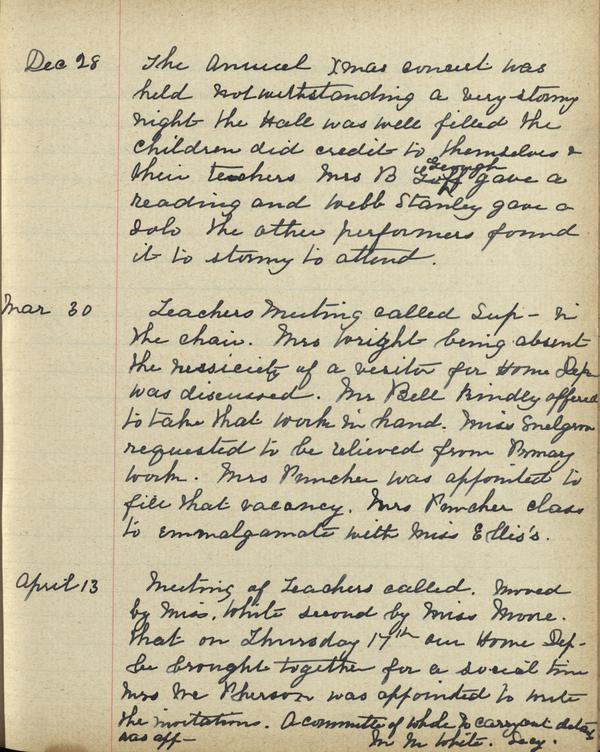 Dec 28 The Annuel Xmas concert was
held notwithstanding a very stormy
night the Hall was well filled the
children did credit to themselves &
their teachers Mrs B Geough gave a
reading and Webb Stanley gave a
solo the other performers found
it to stormy to attend.
Mar 30 Teachers Meeting called Sup - in
the chair. Mrs Wright being absent
the nessiciety of a visitor for Home Dep
was discussed. Mr Bell kindly offered
to take that work in hand. Miss Snelgrov
requested to be relieved from Primary
work. Mrs Puncher was appointed to
fill that vacancy. Mrs Puncher class
to emmalgamate with Miss Ellis's.
April 13 Meeting of Teachers called. Moved
by Miss. White second by Miss Moore.
that on Thursday 17th our Home Dep-
be brought together for a social time
Mrs Mc Pherson was appointed to write
the invitations. A committe of whole to carry out details
was app- M M White. Secy.